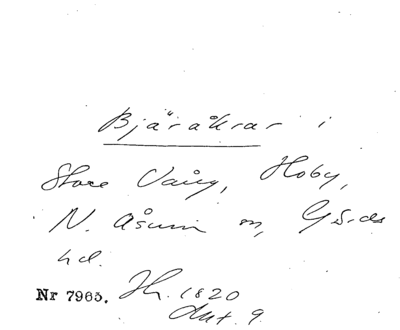 Bjäråkrar i
Stora Vång, Hoby,
N. Åsum sn, Gärds
hd.
Nr 7965. Jh. 1820
Akt. 9